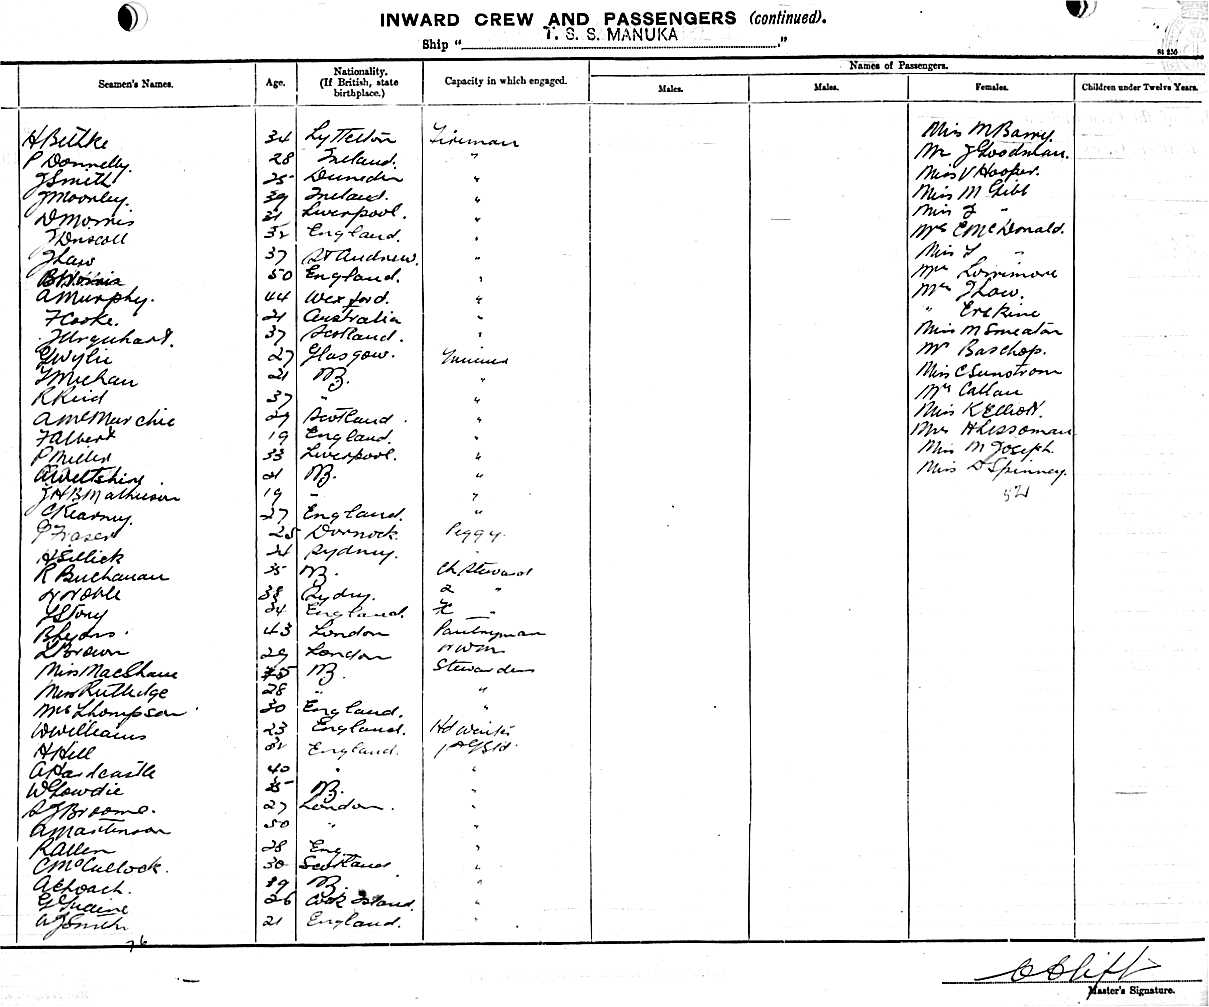 INWARD CREW AND PASSENGERS (continued).
Ship "T. S. S. MANUKA"
Seamen's Names. Age. Nationality. (If British, state birthplace.) Capacity in which engaged. Names of Passengers.
Males. Males. Females. Children under Twelve Years.
H Bethke 34 Lyttelton Fireman Miss M Barry.
P Donnelly. 28 Ireland. " Mr J Goodman.
J Smith 25 Dunedin " Miss V Hooper.
J Moonley. 39 Ireland. " Miss M Gibb
D Morris 31 Liverpool. " Miss J "
J Driscoll 32 England. " Mrs E McDonald.
J Law 37 St Andrew. " Miss J "
50 England. " Mrs Lorrimore
A Murphy. 44 Wexford. " Mrs J Low.
F Cooke. 21 Australia " " Erskine
J Urquhart. 37 Scotland. " Miss M Smeaton
G Wylie 27 Glasgow. Trimmer Mr Baschop.
J Michan 21 NZ. " Miss C Sunstrom
R Reid 37 " " Mrs Callan
A McMurchie 29 Scotland. " Miss K Elliott.
F Albert 19 England. " Mrs H Lissoman
P Miller 33 Liverpool. " Miss M Joseph
A Wiltshire 21 NZ. " Miss D Spinney.
J H B Matheson 19 " " 521
C Kearney. 27 England. "
Fraser 25 Dornock Peggy.
H Sillick 24 Sydney.
R Buchanan 35 NZ. Ch Steward
Noble 38 Sydny. 2 "
J Story 34 England.
B Lyons. 43 London Pantryman
L Brown 29 London
Miss MacShane NZ. Stewardess
Miss Rutledge 28 " "
Mrs Thompson 30 England. "
W Williams 23 England. Hd Waiter
H Hill 32 England.
A Hardcastle 40 " "
W Gowdie 35 NZ. "
S J Broome. 27 London. "
A Martinson 50 " "
R Allen 28 Eng "
C McCullock. 30 Scotland "
A E Roach. 19 NZ. "
26 Cook Island. "
A J Smith 21 England. "
76
Master's Signature.